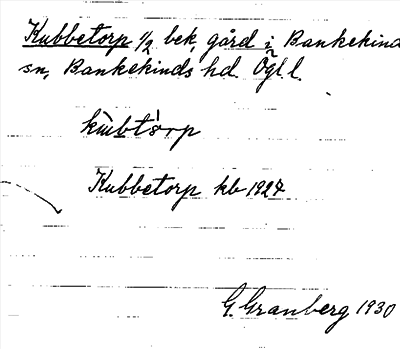 Kubbetorp 1/2 bek, gård i Bankekind
sn, Bankekinds hd. Ögl l.
Kubbetorp kb 1927
G. Granberg 1930